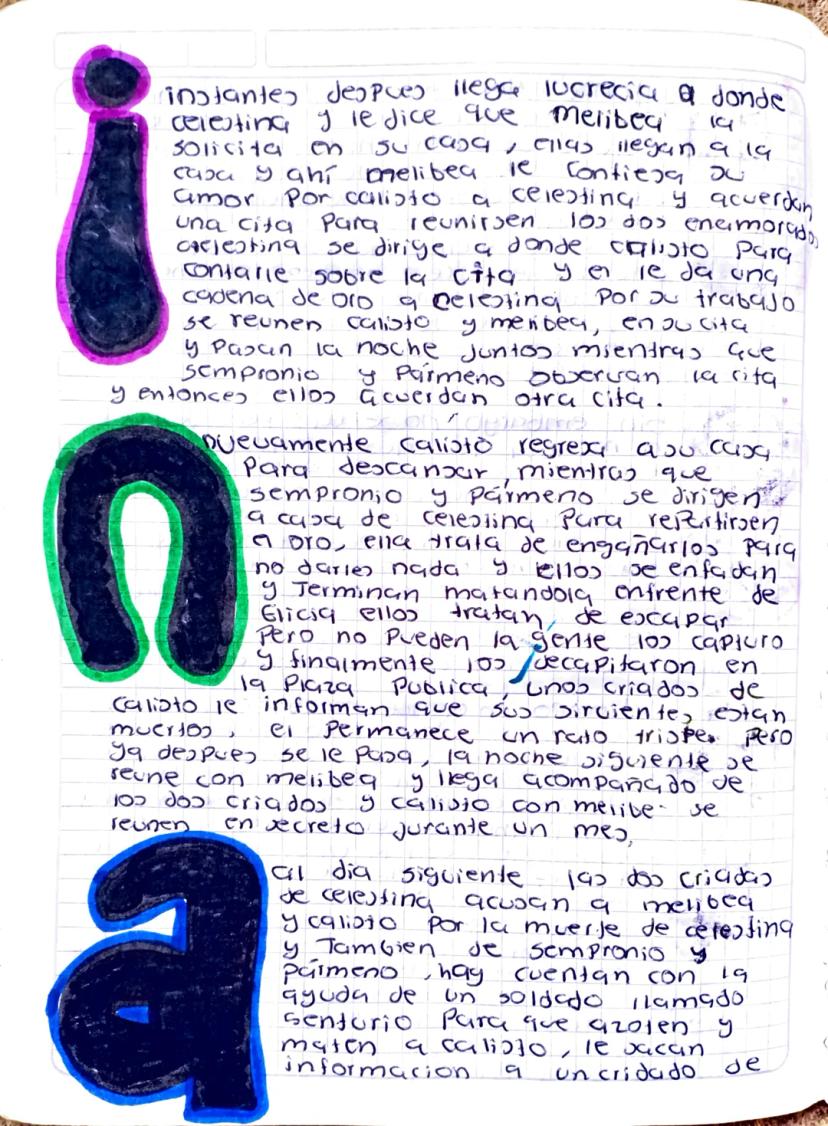 i
instantes despues llega lucrecia a donde
celestina y le dice que Melibea la
solicita en su casa, ellas llegan a la
casa y ahí melibea le confiesa su
amor por calisto a celestina y acuerdan
una cita para reunirsen los dos enamorados
celestina se dirige a donde calisto para
contarle sobre la cita y el le da una
cadena de oro a celestina por su trabajo
se reunen calisto y melibea, en su cita
y pasan la noche juntos mientras que
sempronio y Pármeno observan la cita
y entonces ellos acuerdan otra cita.
n
nuevamente calisto regresa a su casa
para descansar, mientras que
sempronio y pármeno se dirigen
a casa de celestina para repartirsen
el oro, ella trata de engañarlos para
no darles nada y ellos se enfadan
y Terminan matandola enfrente de
Elicia ellos tratan de escapar
pero no pueden la gente los capturo
y finalmente los decapitaron en
la Plaza Publica, unos criados de
calisto le informan que sus sirvientes estan
muertos, el permanece un rato triste pero
ya despues se le pasa, la noche siguiente se
reune con melibea y llega acompañado de
los dos criados y calisto con melibe se
reunen en secreto jurante un mes,
a
al dia siguiente las dos criadas
de celestina acusan a melibea
y calisto por la muerte de celestina
y Tambien de sempronio y
pármeno, hay cuentan con la
ayuda de un soldado llamado
senturio para que azoten y
maten a calisto, le sacan
informacion a un cridado de